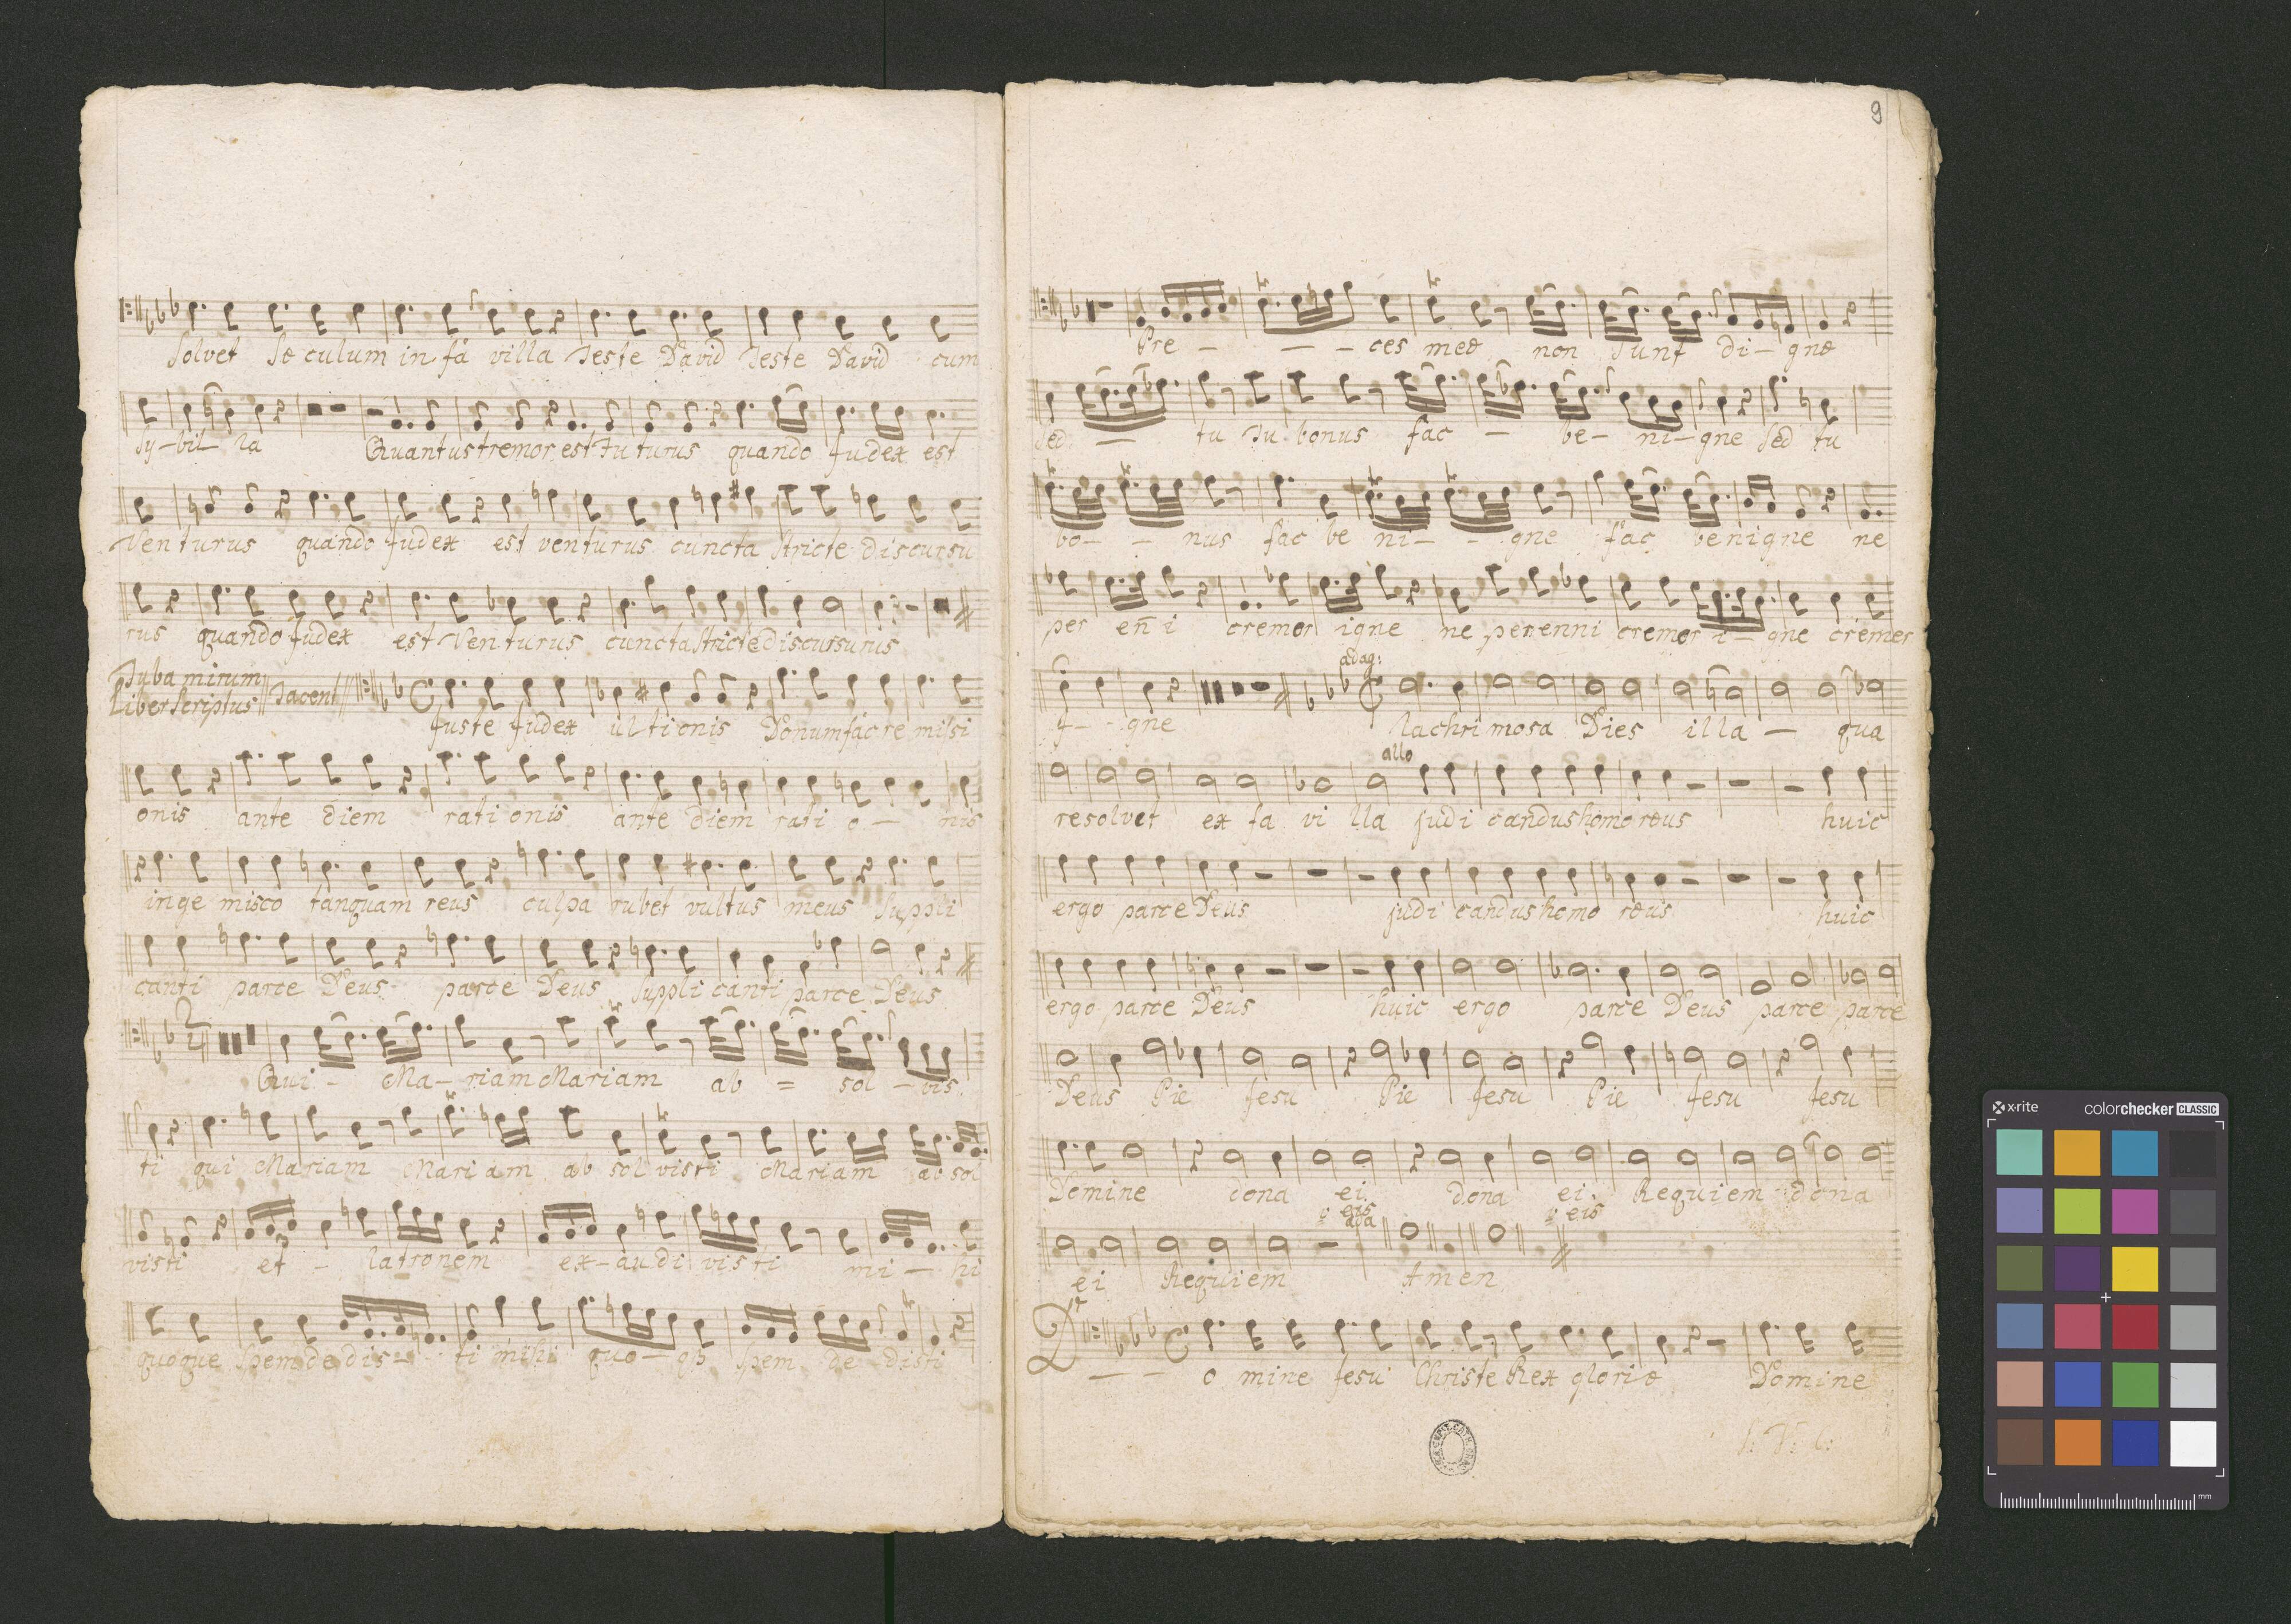 Solvet Sæculum in fa villa Teste David Teste David cum
Sy-bil-la Quantus tremor est fu turus quando Judex est
Venturus quando Judex est venturus cuncta stricte discursu
rus quando Judex est Venturus cuncta stricte discursurus
Tuba mirum
Liber Scriptus Tacent Juste Judex ultionis Donum fac remissi
onis ante diem rationis ante diem rati o - nis
inge misco tanquam reus culpa rubet vultus meus Suppli
canti parce Deus parce Deus Suppli canti parce Deus
Qui - Ma - riam Mariam ab = sol - vis
ti qui Mariam Mari am ab sol visti Mariam ab sol
visti et - latronem ex-au di visti mi - hi
quoque Spem de dis - ti mihi quo - qb spem de disti
9
Pre - - - ces meæ non sunt di - gnæ
Sed - tu Tu bonus fac - be - ni - gne Sed tu
bo - - nus fac be ni - - gne fac benigne ne
per en̄i cremor igne ne perenni cremor i - gne cremer
adag:
y - - gne lachri mosa Dies illa - qua
allo
resolvet ex fa vi lla judi candus homo reus huic
ergo parce Deus judi candus homo reus huic
ergo parce Deus huic ergo parce Deus parce parce
Deus Pie Jesu Pie Jesu Pie Jesu Jesu
Domine dona ei dona ei. Requiem dona
eis eis
ada
ei Requiem Amen
D - - o mine Jesu Christe Rex gloriæ Domine
x-rite colorchecker CLASSIC
mm